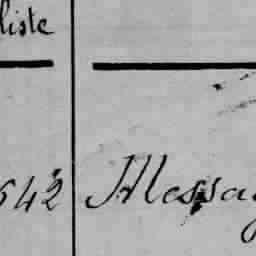 liste
542 Messag